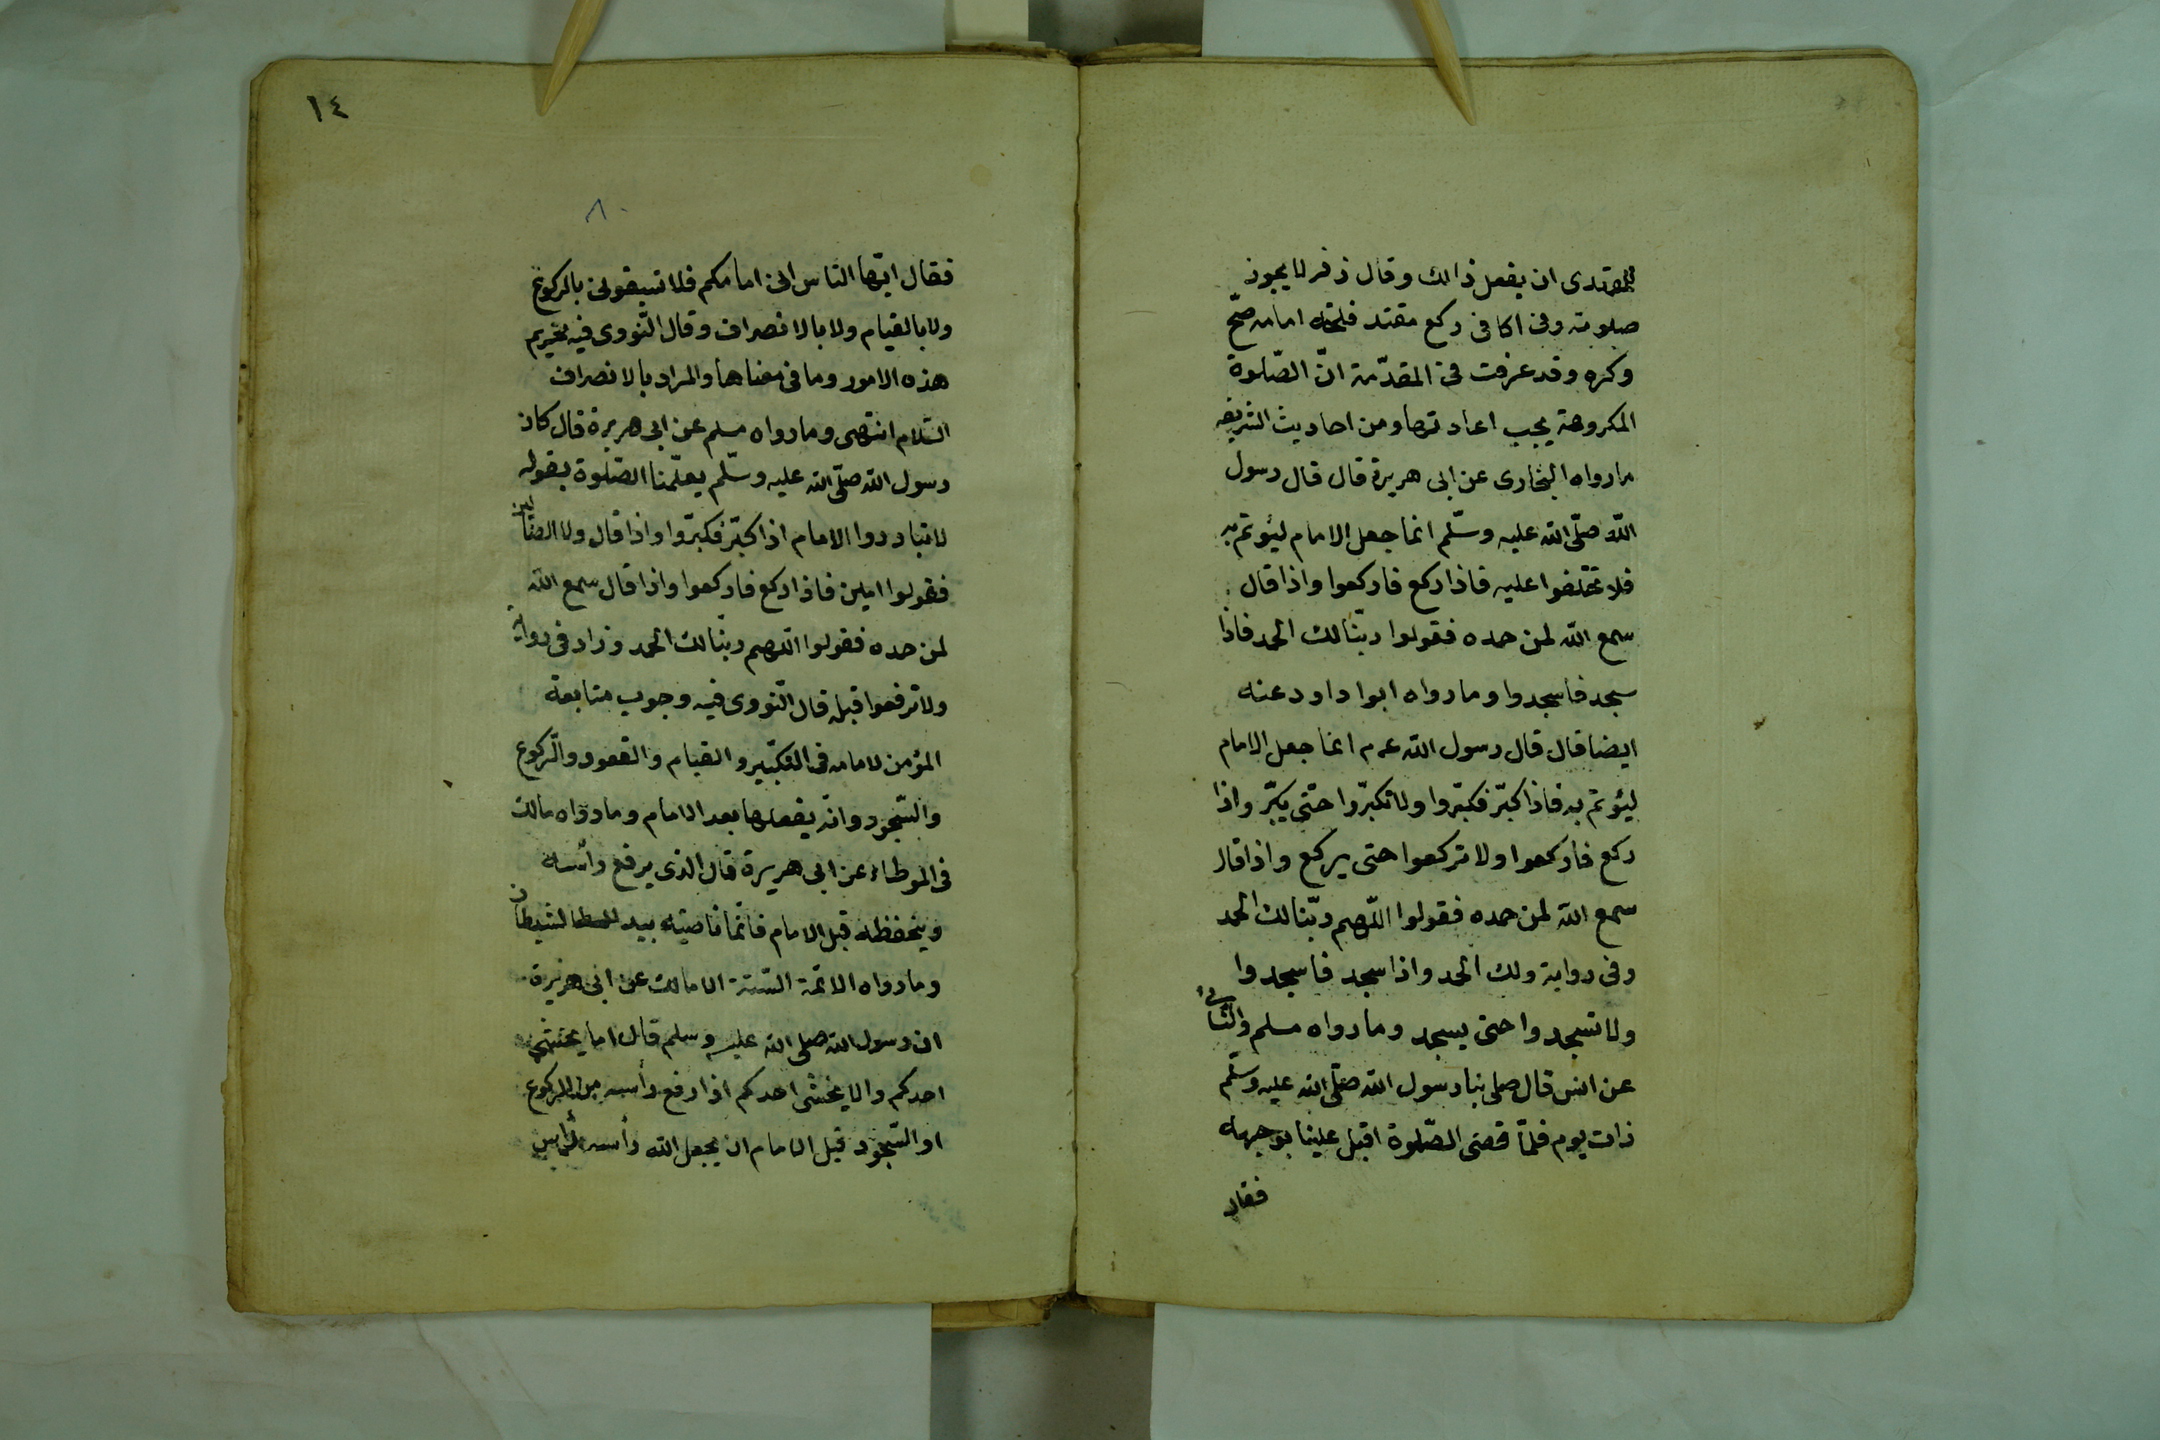 للمقتدى ان يفعل ذالك وقال زفر لا يجوز
صلوته وفى الكافى ركع مقتد فلحقه امامه صحّ
وكره وقد عرفت فى المقدّمة انّ الصّلوة
المكروهة يجب اعادتها ومن احاديث الشريفه
مارواه البخارى عن ابى هريرة قال قال رسول
اللّه صلّى اللّه عليه وسلّم انما جعل الامام ليؤتم به
فلا تختلفوا عليه فاذا ركع فاركعوا واذا قال
سمع اللّه لمن حمده فقولوا ربّنا لك الحمد فاذا
سجد فاسجدوا وما رواه ابوا داود عنه
ايضا قال قال رسول اللّه عم انما جعل الامام
ليؤتم به فاذا كبّر فكبّروا ولا تكبّروا حتّى يكبّر واذا
ركع فاركعوا ولا تركعوا حتى يركع واذا قال
سمع اللّه لمن حمده فقولوا اللّهم ربّنا لك الحمد
وفى رواية ولك الحمد واذا سجد فاسجدوا
ولا تسجدوا حتى يسجد وما رواه مسلم والنّسائى
عن انس قال صلى بنا رسول اللّه صلّى اللّه عليه وسلّم
ذات يوم فلمّا قضى الصّلوة اقبل علينا بوجهه
فقال
١٤
٨
فقال ايّها النّاس انى امامكم فلا تسبقونى بالركوع
ولا بالقيام ولا بالانصراف وقال النّووى فيه تحريم
هذه الامور وما فى معناها والمراد بالانصراف
السّلام انتهى وما رواه مسلم عن ابى هريرة قال كان
رسول اللّه صلّى اللّه عليه وسلّم يعلّمنا الصّلوة بقوله
لا تبادروا الامام اذا كبّر فكبّروا واذا قال ولا الضّالين
فقولوا امين فاذا ركع فاركعوا واذا قال سمع اللّه
لمن حمده فقولوا اللّهم ربّنا لك الحمد وزاد فى رواية
ولا ترفعوا قبله قال النّووى فيه وجوب متابعة
المؤمن لامامه فى التكبّير والقيام والقعود والرّكوع
والسّجود وانّه يفعلها بعد الامام وما رواه مالك
فى الموطاء عن ابى هريرة قال الذى يرفع رأسه
ويخفظه قبل الامام فانّما ناصيته بيد الشيطان
وما رواه الائمّة السّتة الا مالك عن ابى هريرة
ان رسول اللّه صلى اللّه عليه وسلم قال اما يخشى
احدكم والا يخشى احدكم اذا رفع رأسه من الركوع
او السّجود قبل الامام ان يجعل اللّه رأسه رأس